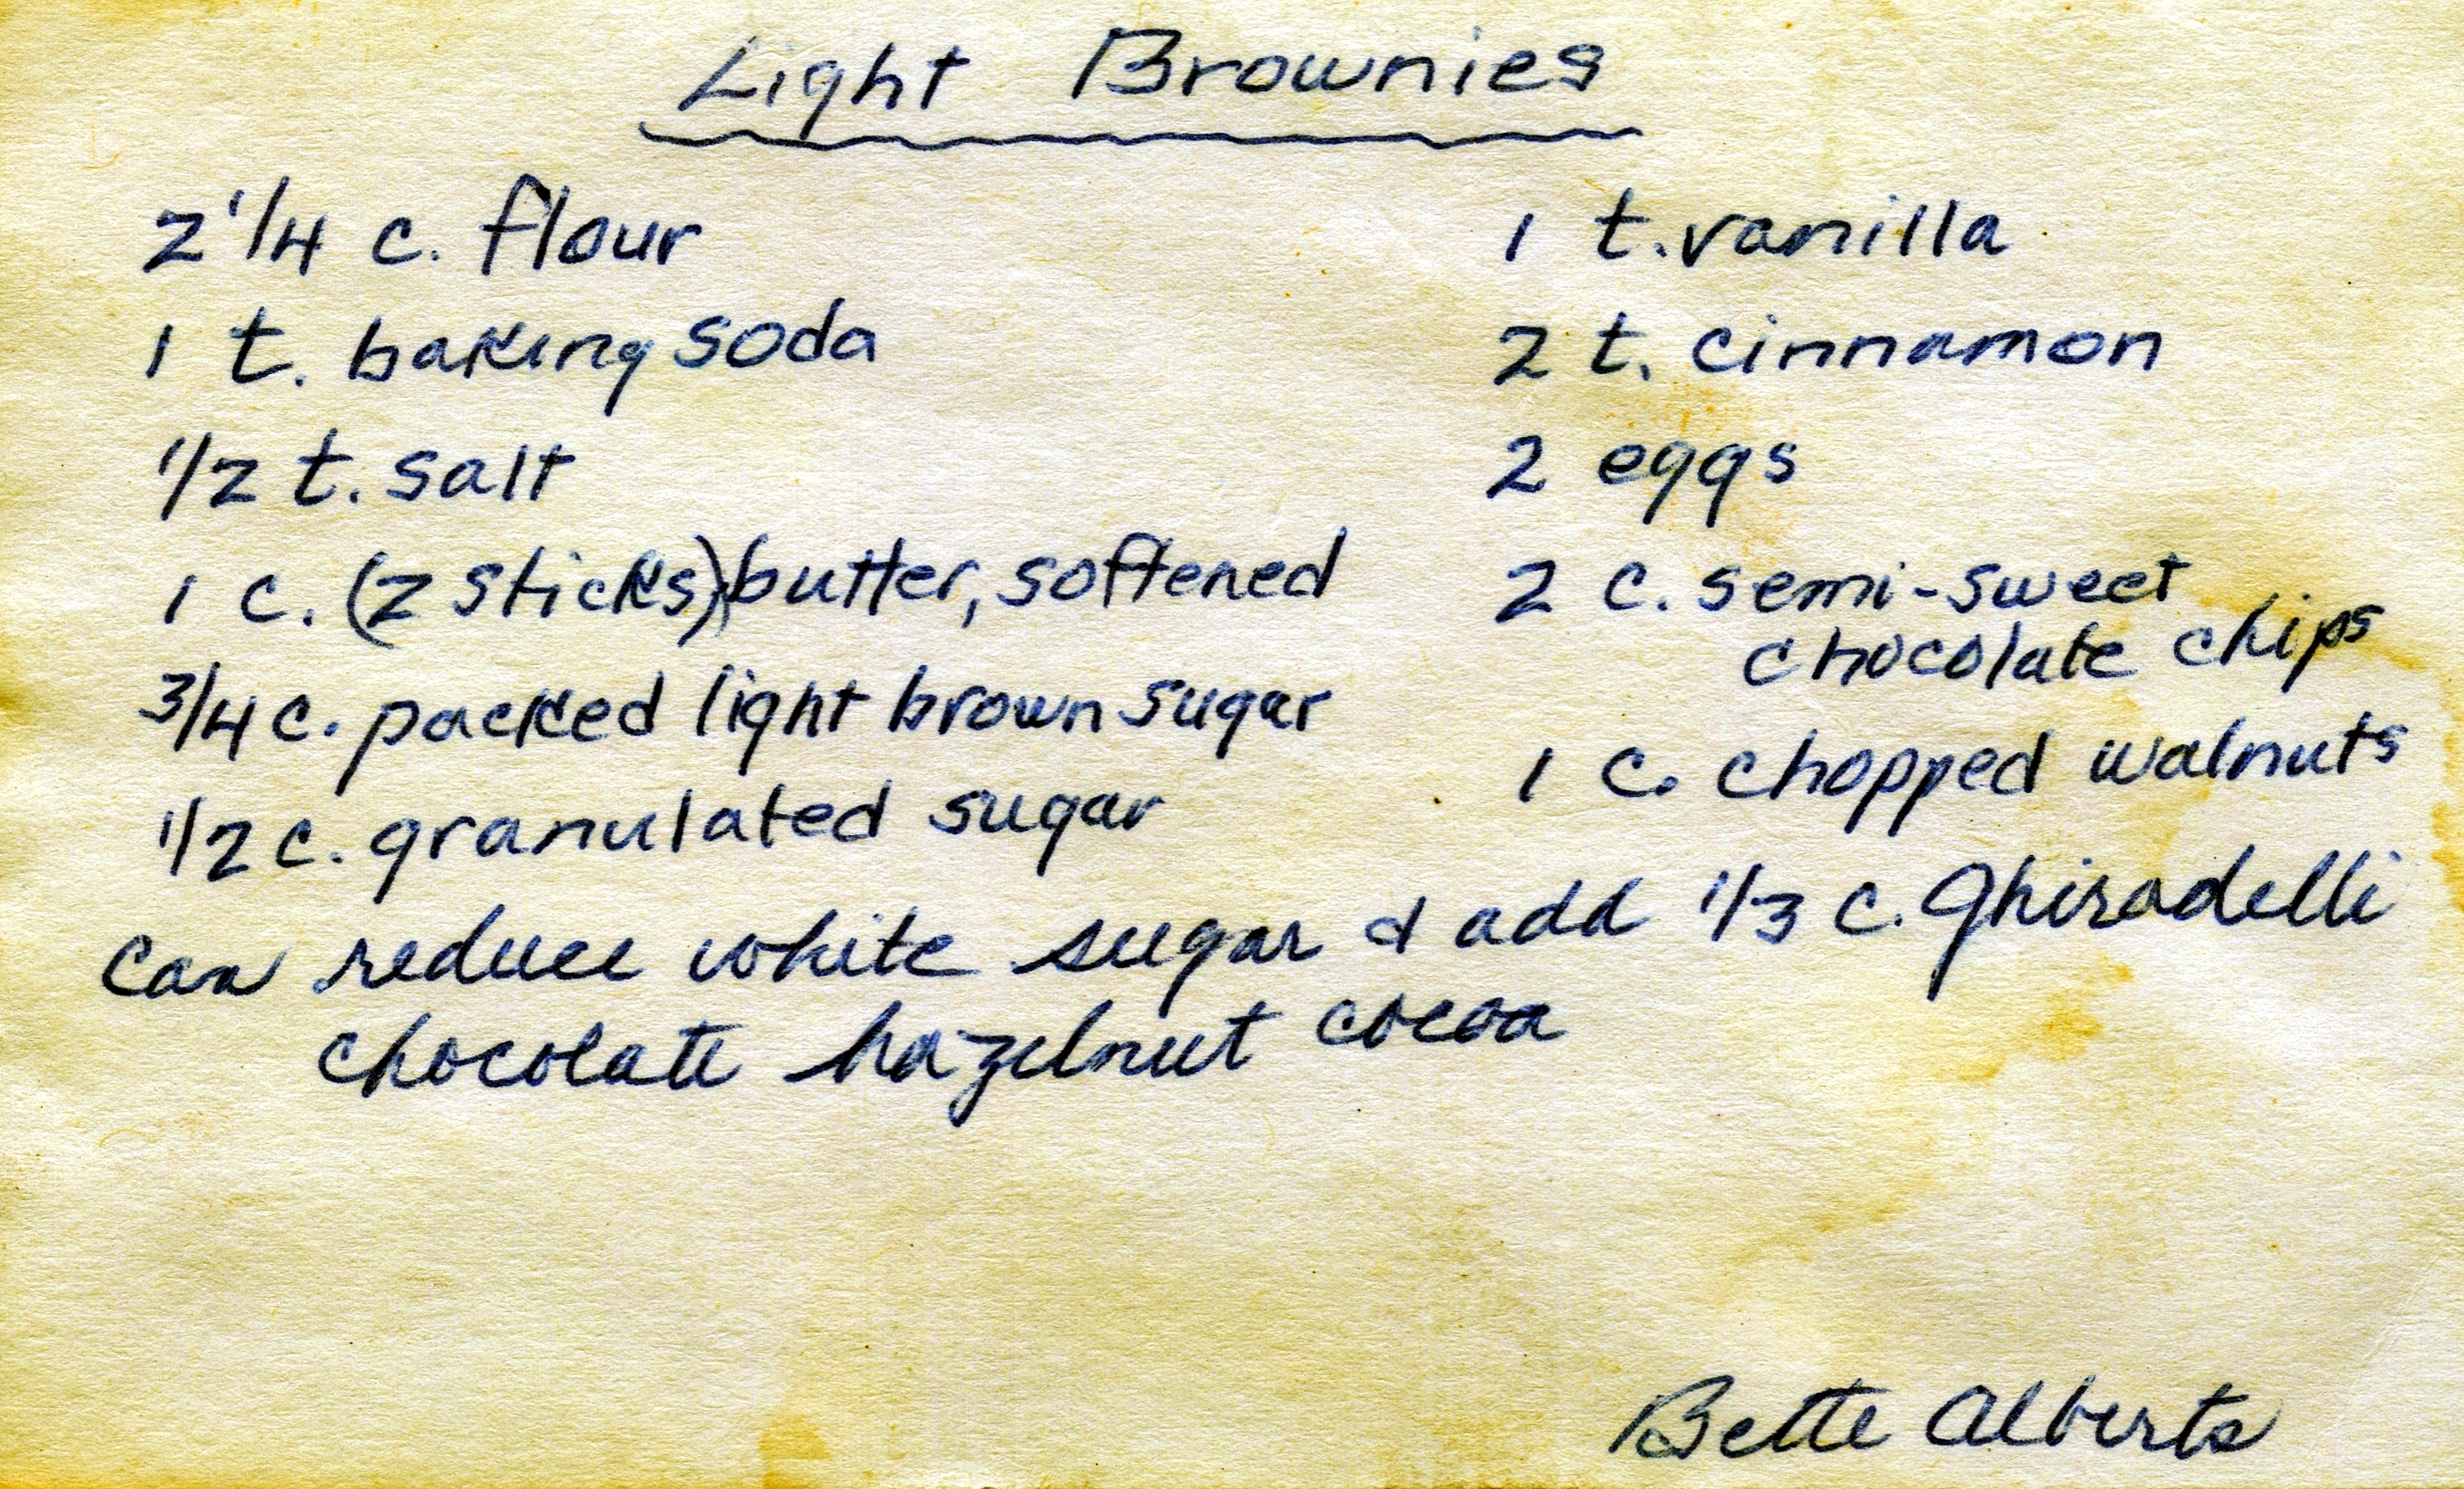 Light Brownies
2 1/4 c. flour
1 t. baking soda
1/2 t. salt
1 c. (2 sticks) butter, softened
3/4 c. packed light brown sugar
1/2 c. granulated sugar
1 t. vanilla
2 t. cinnamon
2 eggs
2 c. semi-sweet
chocolate chips
1 c. chopped walnuts
can reduce white sugar & add 1/3 c. Ghiradelli
chocolate hazelnut cocoa
Bette Alberts